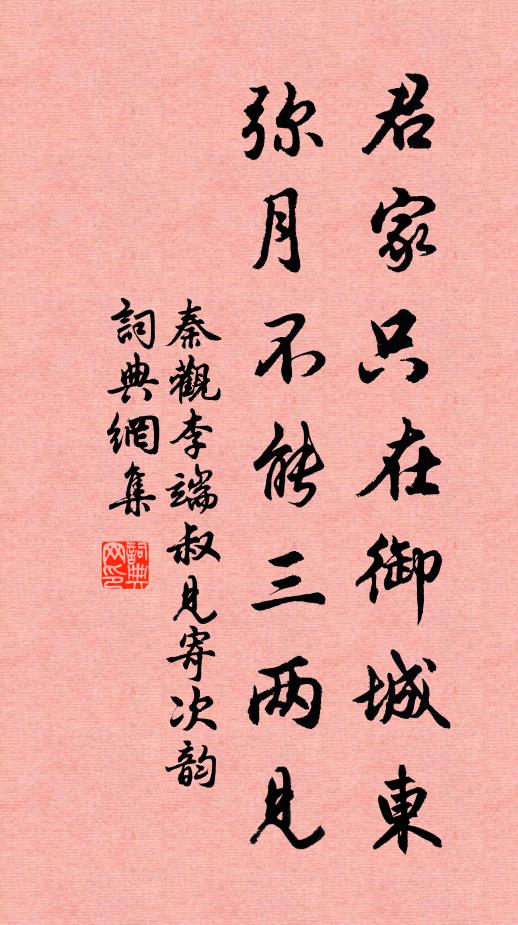 君家只在御城東
弥月不能三两見
秦觀李端叔見寄次韵
詞典網集
詞典网印